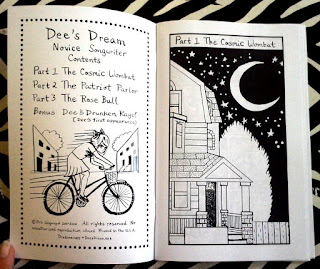 Dee's Dream
Novice Songwriter
Contents
Part 1 The Cosmic Wombat
Part 2 The Patriot Parlor
Part 3 The Rose Bull
Bonus Dee's Drunken Rage!
(Dee's first appearance)
All rights reserved. No
Printed in the U.S.A.
Part 1 The Cosmic Wombat